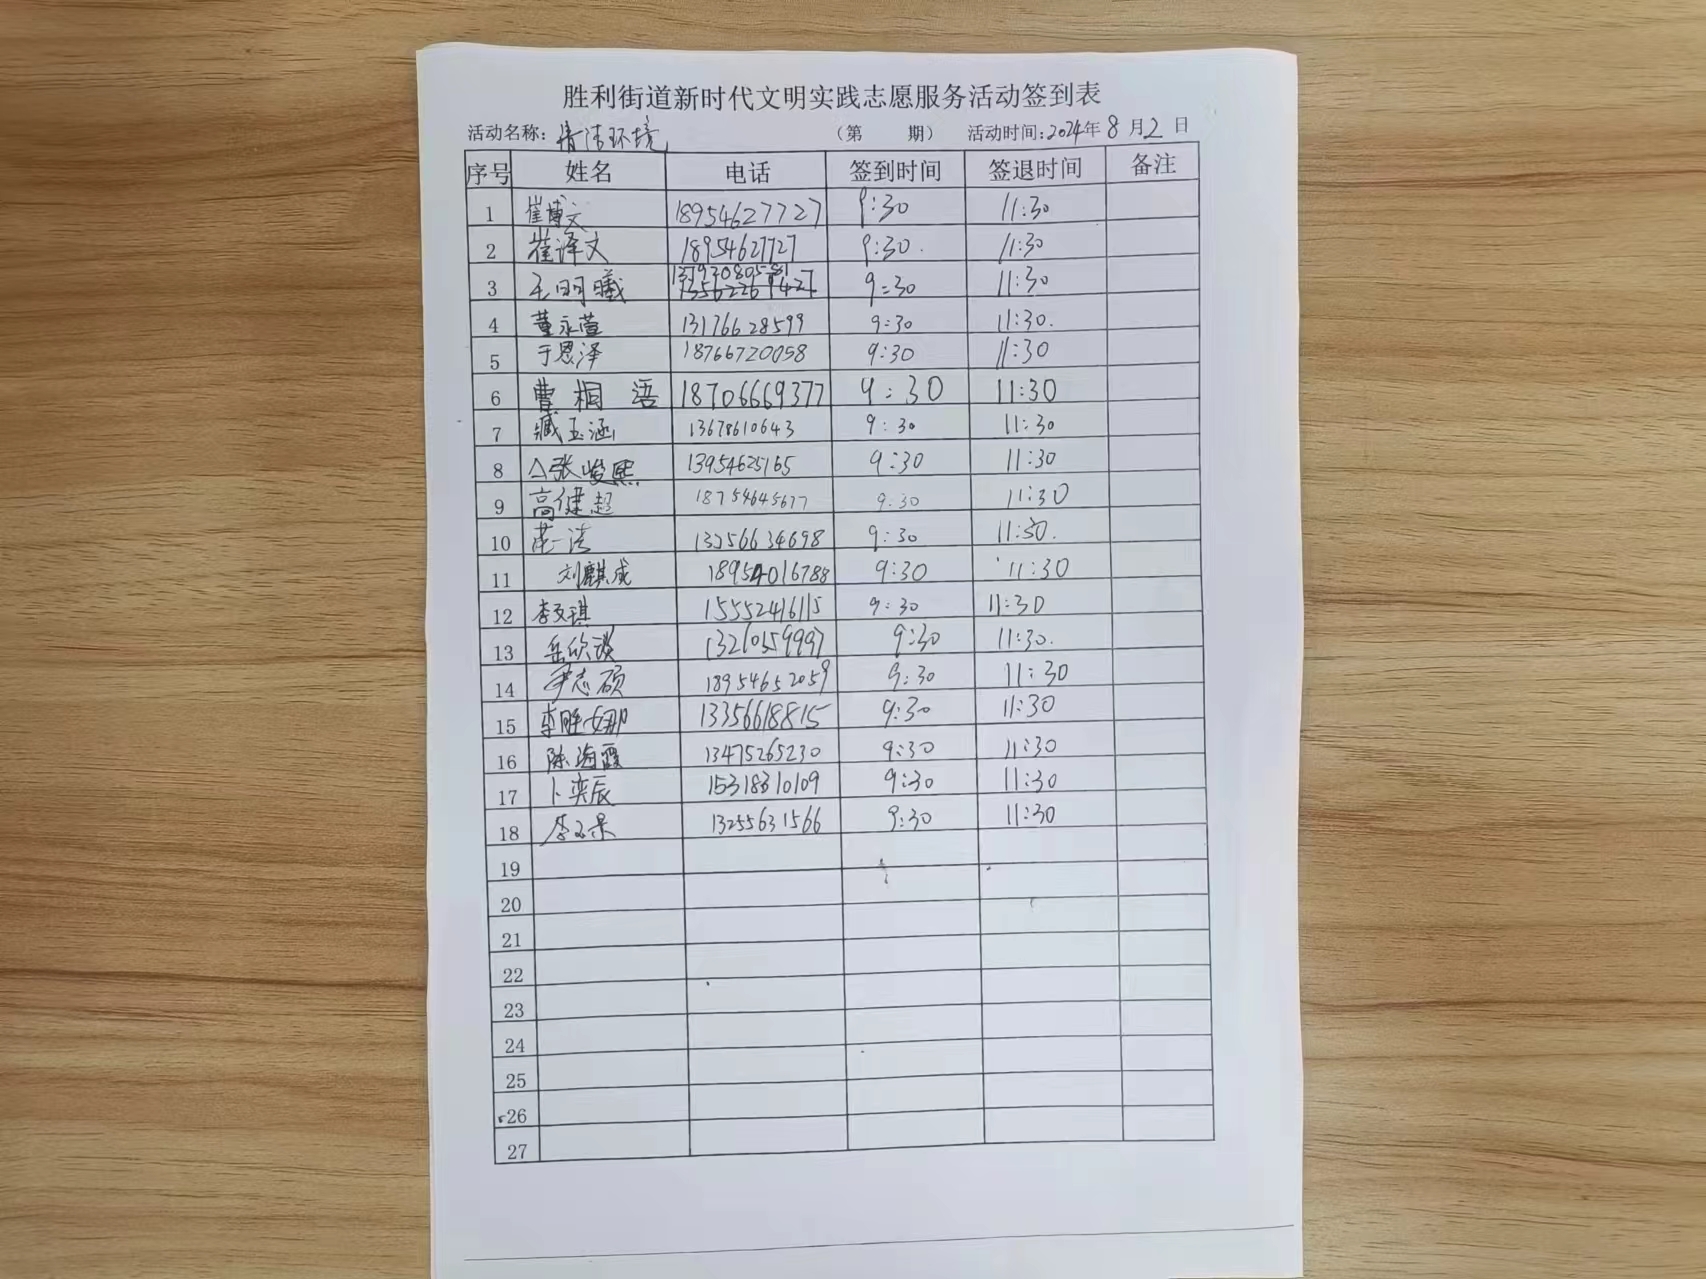 胜利街道新时代文明实践志愿服务活动签到表
活动名称: 清洁环境 （第 期） 活动时间:2024年8月2日
序号 姓名 电话 签到时间 签退时间 备注
1 崔博文 18954627727 9:30 11:30
2 崔译文 18954627727 9:30. 11:30
3 王明曦 9:30 11:30
4 董永萱 13176628599 9:30 11:30.
5 于恩泽 18766720058 9:30 11:30
6 曹桐语 18706669377 9:30 11:30
7 臧玉涵 13678610643 9:30 11:30
8 △张峻熙 13954625165 9:30 11:30
9 高健超 18754645677 9:30 11:30
10 13256634698 9:30 11:30.
11 刘麒成 18954016788 9:30 11:30
12 李文琪 15552416115 9:30 11:30
13 岳欣 13210559997 9:30 11:30.
14 尹志硕 18954652059 9:30 11:30
15 李胜娜 13356618815 9:30 11:30
16 陈海霞 13475265230 9:30 11:30
17 卜奕辰 15318310109 9:30 11:30
18 13255631566 9:30 11:30
19
20
21
22
23
24
25
26
27